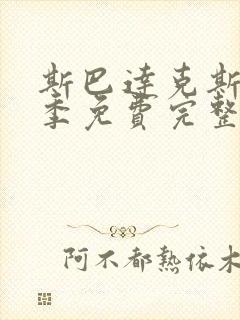 斯巴达克斯
季免费完整
阿不都热依木